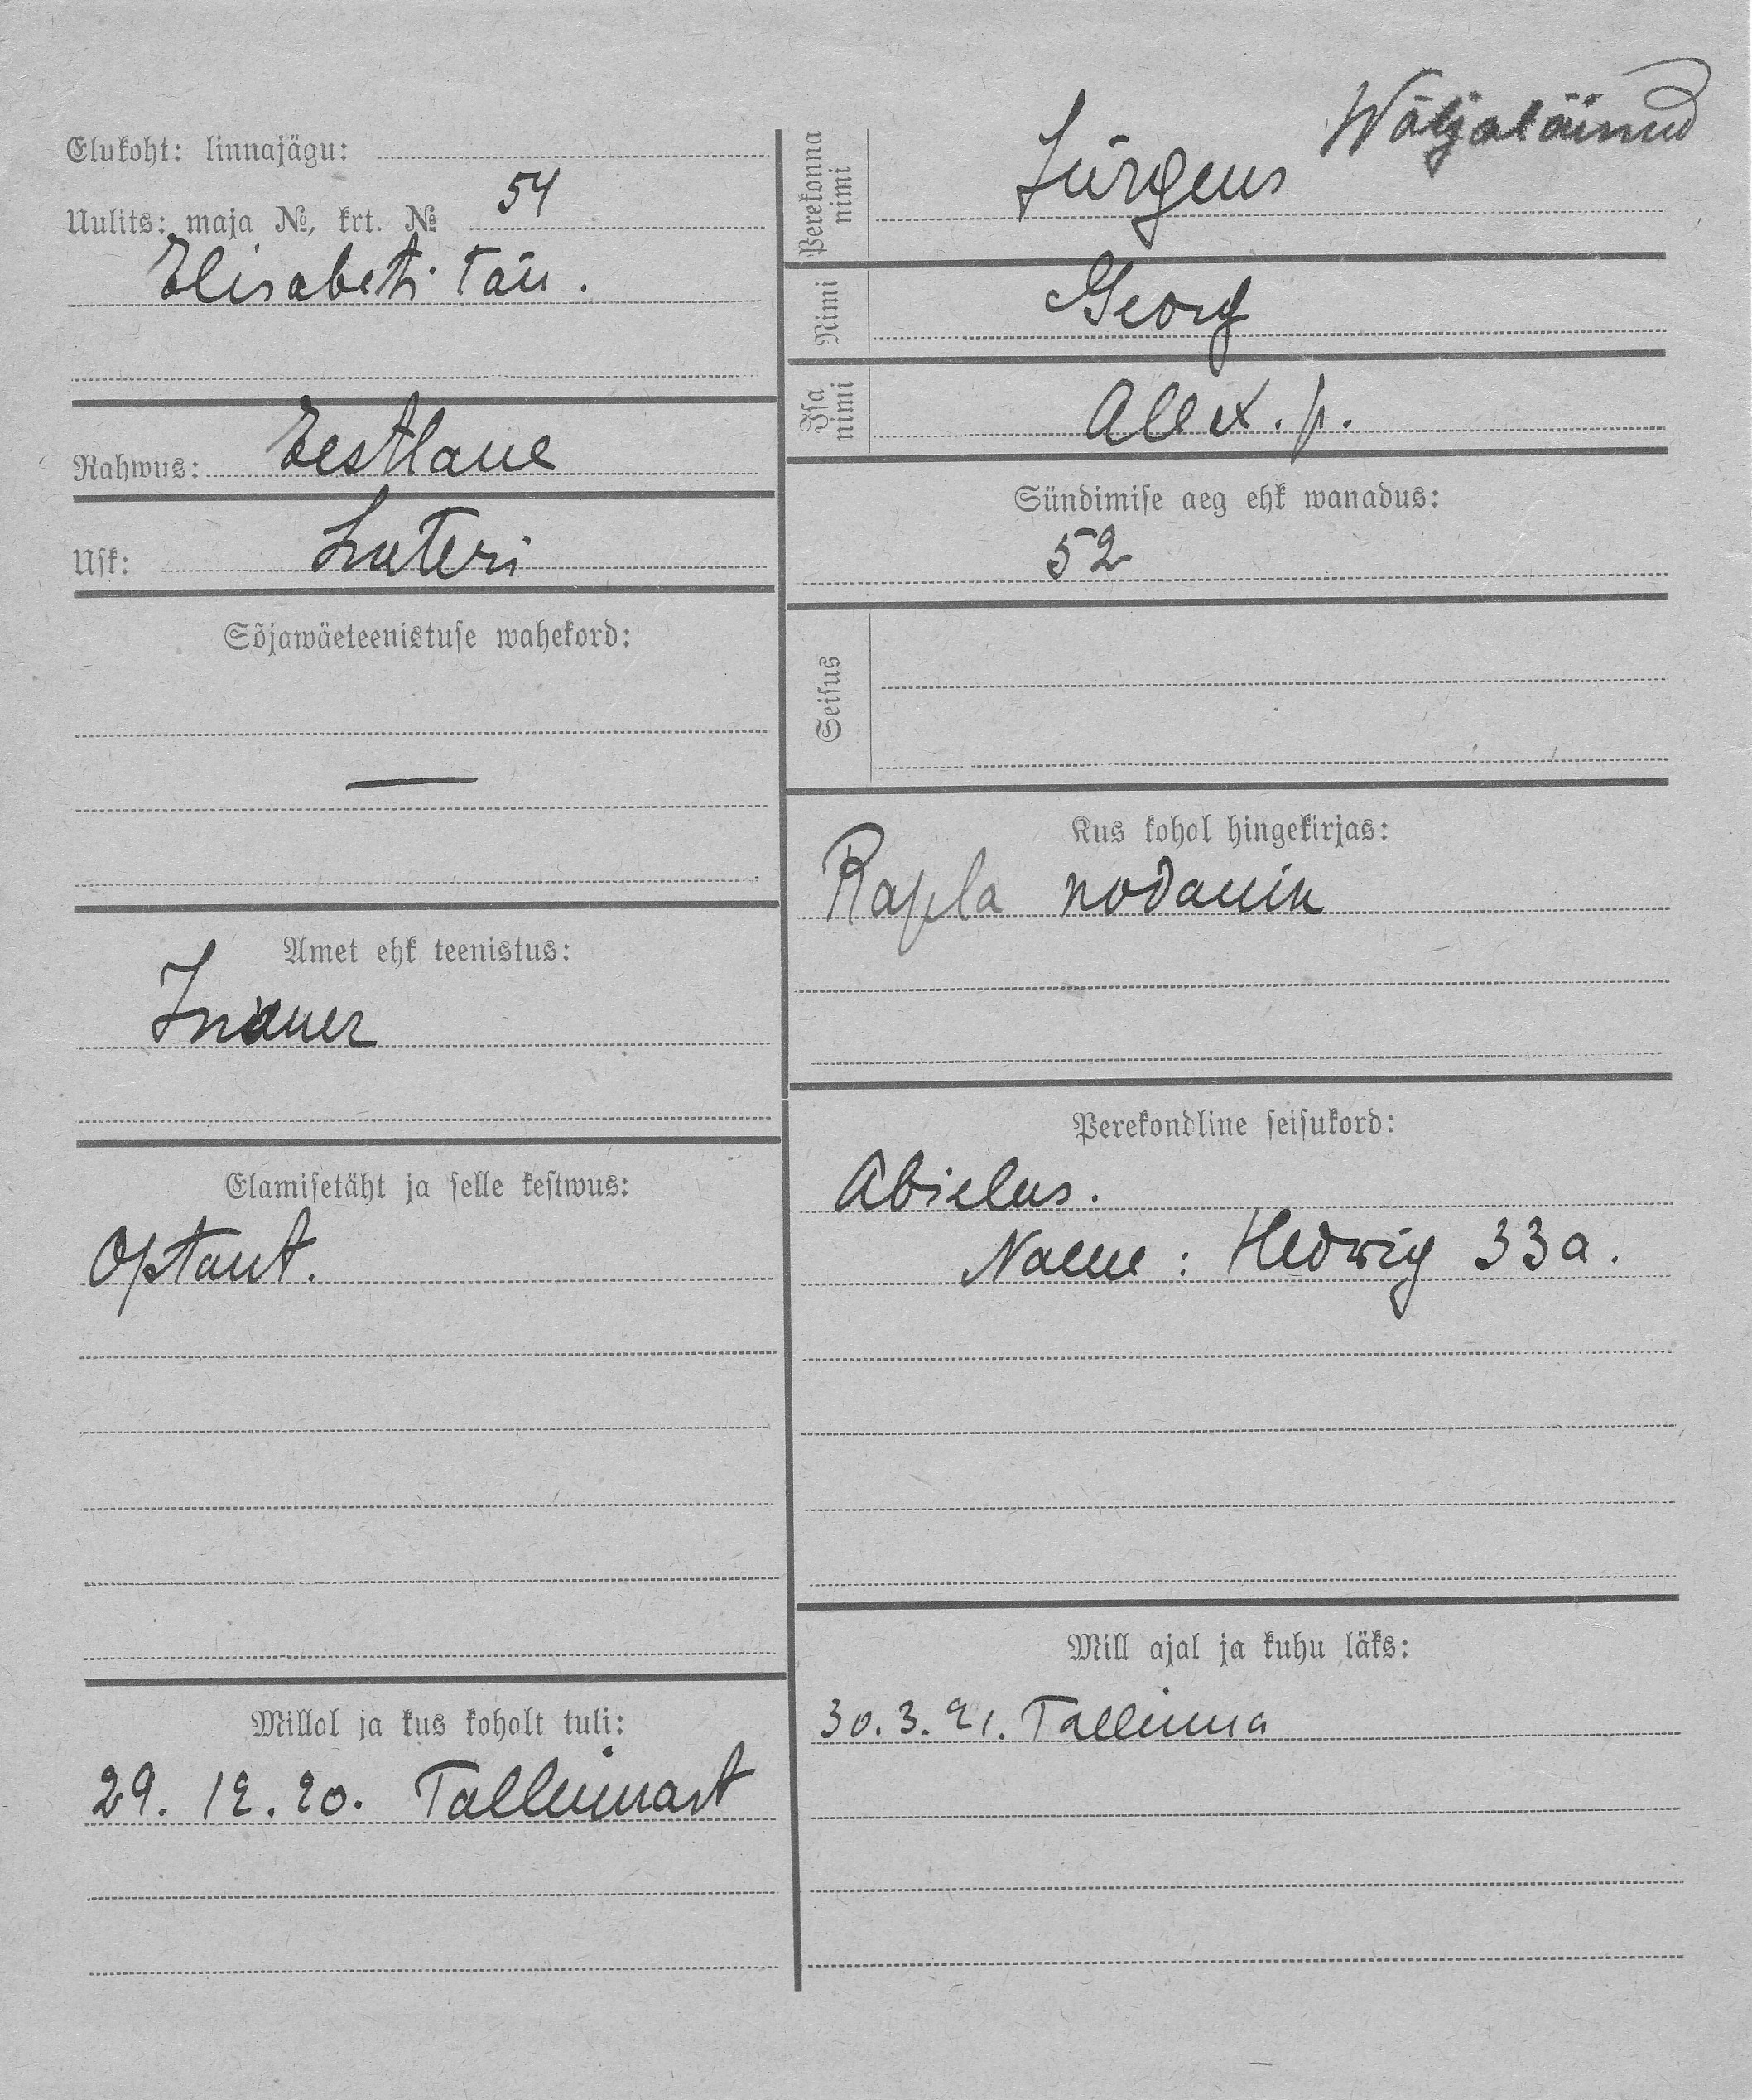 Elukoht: linnajägu:
Uulits: maja №, krt. № 54
Elisabeti tän.
Rahwus: Eestlane
Usk: Luteri
Sõjawäeteenistuse wahekord:
—
Amet ehk teenistus:
Elamisetäht ja selle kestwus:
Optant.
Millal ja kus kohalt tuli:
29. 12. 20. Tallinnast
Wäljaläinud
Perekonna nimi Jürgens
Nimi Georg
Isa nimi Alex. p.
Sündimise aeg ehk wanadus:
52
Seisus
Kus kohal hingekirjas:
Rapla kodanik
Perekondline seisukord:
Abielus.
Naene: Hedwig 33a.
Mill ajal ja kuhu läks:
30. 3. 21. Tallinna